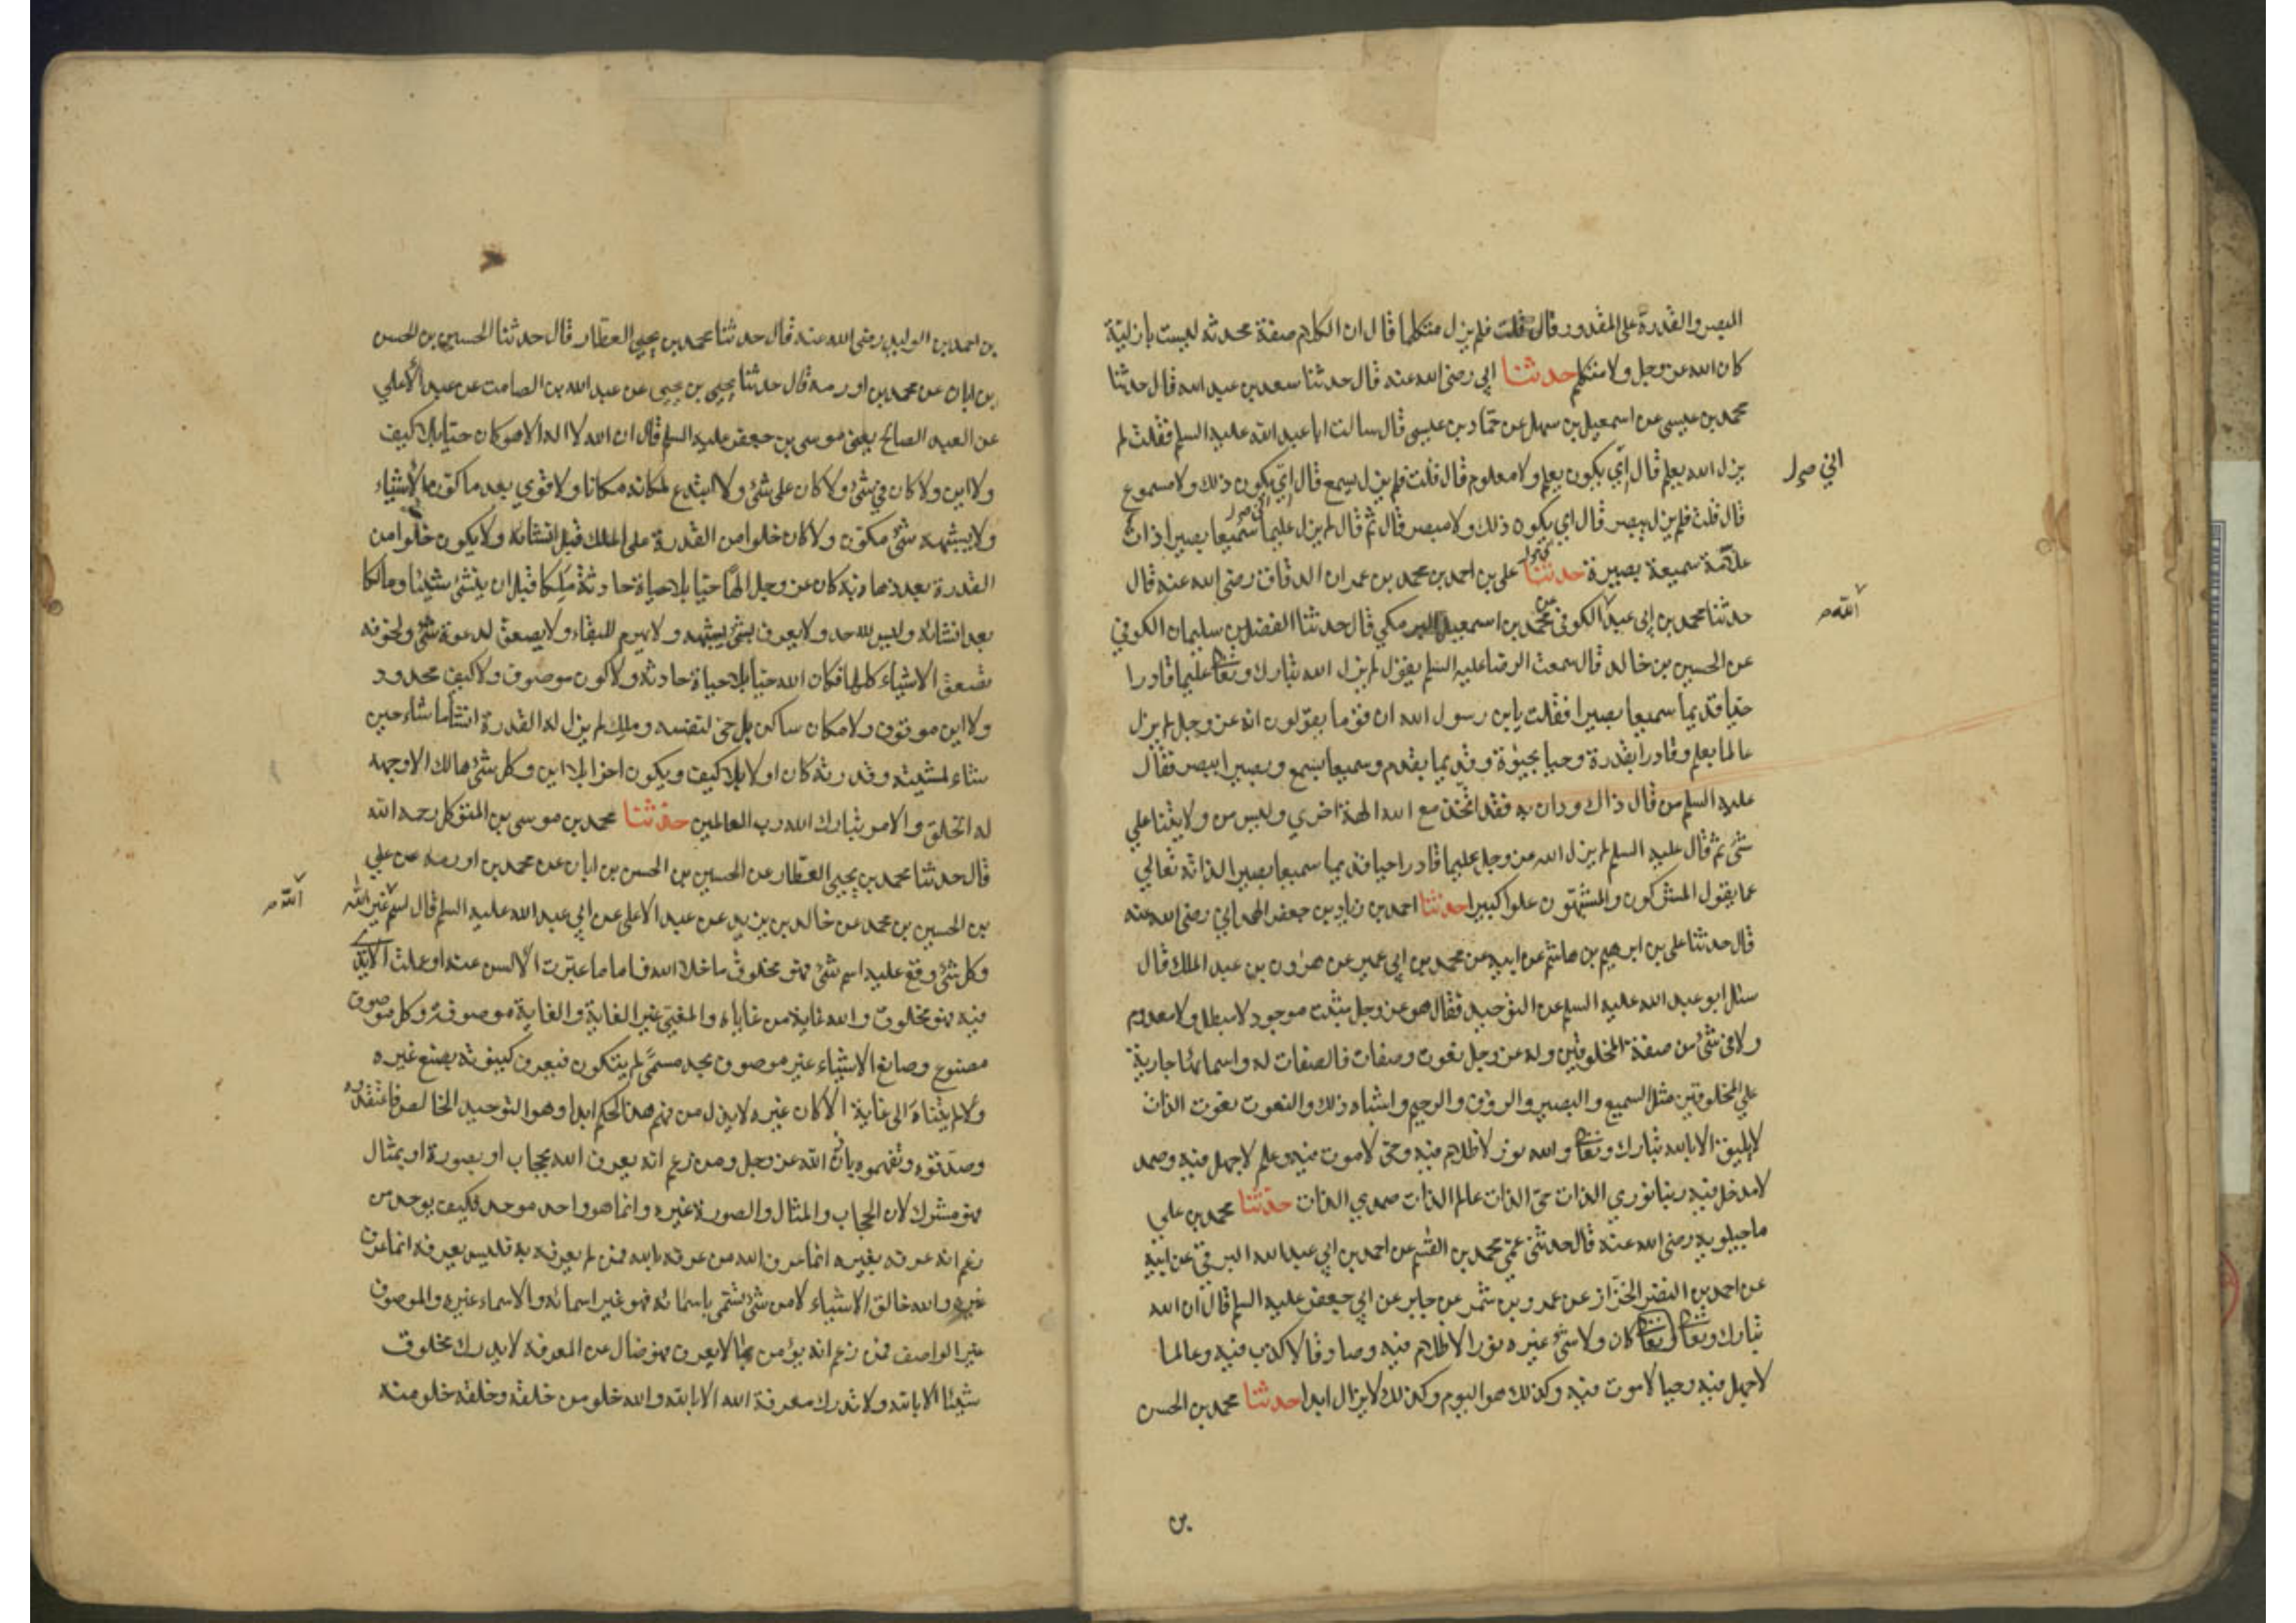 البصر والقدرة على المقدور قال قلت فلم يزل متكلما قال ان الكلام صفة محدثه ليست بازلية
كان الله عز وجل ولا متكلم حدثنا ابي رضى الله عنه قال حدثنا سعد بن عبد الله قال حدثنا
محمد بن عيسى عن اسمعيل بن سهل عن حماد بن عيسى قال سالت ابا عبد الله عليه السلم فقلت لم
يزل الله يعلم قال اني يكون يعلم ولا معلوم قال قلت فلم يزل يسمع قال اني يكون ذلك ولا مسموع
قال قلت فلم يزل يبصر قال اني يكون ذلك ولا مبصر قال ثم قال لم يزل عليما سميعا بصيرا ذات
علامة سميعة بصيرة حدثنا علي بن احمد بن محمد بن عمران الدقاق رضى الله عنه قال
حدثنا محمد بن ابي عبد الكوفي عن محمد بن اسمعيل البرمكي قال حدثنا الفضل بن سليمان الكوفي
الله
عن الحسين بن خالد قال سمعت الرضا عليه السلم يقول لم يزل الله تبارك وتعالى عليما قادرا
حيا قديما سميعا بصيرا فقلت يابن رسول الله ان قوما يقولون انه عز وجل لم يزل
عالما بعلم وقادرا بقدرة وحيا بحيوة وقديما بقدم وسميعا بسمع وبصيرا ببصر فقال
عليه السلم من قال ذاك ودان به فقد اتخذ مع الله الهة اخري وليس من ولايتنا علي
شئ ثم قال عليه السلم لم يزل الله عز وجل عليما قادرا حيا قديما سميعا بصيرا لذاته تعالي
عما يقول المشركون والمشبهون علوا كبيرا حدثنا احمد بن زياد بن جعفر الهمداني رضى الله عنه
قال حدثنا علي بن ابرهيم بن هاشم عن ابيه عن محمد بن ابي عمير عن هرون بن عبد الملك قال
سئل ابو عبد الله عليه السلم عن التوحيد فقال هو عز وجل مثبت موجود لا مبطل ولا معدوم
ولا في شئ من صفة المخلوقين وله عز وجل نعوت وصفات فالصفات له واسماؤها جارية
علي المخلوقين مثل السميع والبصير والرؤف والرحيم واشباه ذلك والنعوت نعوت الذات
لا يليق الا بالله تبارك وتعالى والله نور لا ظلام فيه وحي لا موت فيه وعلم لا جهل فيه وصمد
لا مدخل فيه ربنا نوري الذات حي الذات عالم الذات صمدي الذات حدثنا محمد بن علي
ماجيلويه رضى الله عنه قال حدثني عمي محمد بن القسم عن احمد بن ابي عبد الله البرقي عن ابيه
عن احمد بن النضر الخزاز عن عمرو بن شمر عن جابر عن ابي جعفر عليه السلم قال ان الله
تبارك وتعالى كان ولا شئ غيره نورا لا ظلام فيه وصادقا لا كذب فيه وعالما
لا جهل فيه وحيا لا موت فيه وكذلك هو اليوم وكذلك لا يزال ابدا حدثنا محمد بن الحسن
بن
بن احمد بن الوليد رضى الله عنه قال حدثنا محمد بن يحيى العطار قال حدثنا الحسين بن الحسن
بن ابان عن محمد بن اورمه قال حدثنا يحيى بن يحيى عن عبد الله بن الصامت عن عبد الاعلي
عن العبد الصالح يعني موسى بن جعفر عليه السلم قال ان الله لا اله الا هو كان حيا بلا كيف
ولا اين ولا كان في شئ ولا كان على شئ ولا ابتدع لمكانه مكانا ولا قوي بعد ما كون الاشياء
ولا يشبهه شئ مكون ولا كان خلوا من القدرة على الملك قبل انشائه ولا يكون خلوا من
القدرة بعد ذهابه كان عز وجل الها حيا بلا حياة حادثة ملكا قبل ان ينشئ شيئا ومالكا
بعد انشائه وليس لله حد ولا يعرف بشئ يشبهه ولا يهرم للبقاء ولا يصعق لدعوة شئ ولخوفه
تصعق الاشياء كلها فكان الله حيا بلا حياة حادثه ولا كون موصوف ولا كيف محدود
ولا اين موقوف ولا مكان ساكن بل حي لنفسه وملك لم يزل له القدرة انشأ ما شاء حين
شاء لمشيته وقدرته كان اولا بلا كيف ويكون اخرا بلا اين وكل شئ هالك الا وجهه
له الخلق والامر تبارك الله رب العالمين حدثنا محمد بن موسى بن المتوكل رحمه الله
قال حدثنا محمد بن يحيى العطار عن الحسين بن الحسن بن ابان عن محمد بن اورمه عن علي
بن الحسين بن محمد عن خالد بن يزيد عن عبد الاعلى عن ابي عبد الله عليه السلم قال اسم غير الله
الله
وكل شئ وقع عليه اسم شئ فهو مخلوق ما خلا الله فاما ما عبرت الالسن عنه او عملت الايدي
فيه فهو مخلوق والله غاية من غاياه والمغيى غير الغاية والغاية موصوفة وكل موصوف
مصنوع وصانع الاشياء غير موصوف بحد مسمى لم يتكون فيعرف كينونته بصنع غيره
ولم يتناه الى غاية الا كان غيره لا يزل من فهم هذا الحكم ابدا وهو التوحيد الخالص فاعتقدوه
وصدقوه وتفهموه باذن الله عز وجل ومن زعم انه يعرف الله بحجاب او بصورة او بمثال
فهو مشرك لان الحجاب والمثال والصورة غيره وانما هو واحد موحد فكيف يوحد من
زعم انه عرفه بغيره انما عرف الله من عرفه بالله فمن لم يعرفه به فليس يعرفه انما عرف
غيره والله خالق الاشياء لا من شئ يسمى باسمائه فهو غير اسمائه والاسماء غيره والموصوف
غير الواصف فمن زعم انه يؤمن بما لا يعرف فهو ضال عن المعرفة لا يدرك مخلوق
شيئا الا بالله ولا تدرك معرفة الله الا بالله والله خلو من خلقه وخلقه خلو منه